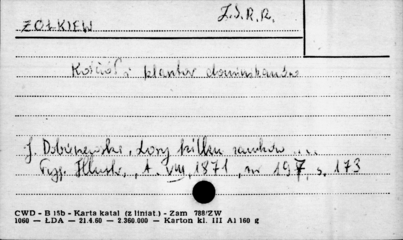 Z.S.R.R.
ŻÓŁKIEW
Kościół i klasztor dominikanów
J. Dobrzewski, Losy kilku zamków ...
Tyg. Illustr., t. VIII, 1871, nr 197, s. 173
CWD - B 15b - Karta katal (z liniat.) - Zam 788/ZW
1060 — ŁDA — 21.4.60 — 2.360.000 — Karton kl. III A1 160 g